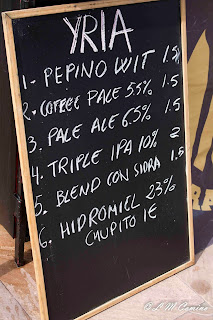 YRIA
1- PEPINO WIT 1.5
2. COFFEE PALE 5.5% 1.5
3. PALE ALE 6.5% 1.5
4. TRIPLE IPA 10% 2
5. BLEND CON SIDRA 1.5
6. HIDROMIEL 23%
CHUPITO 1€